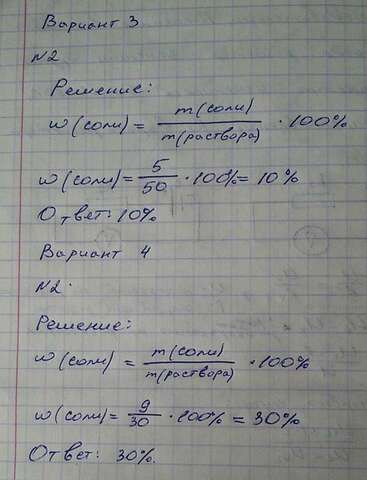 Вариант 3
№2
Решение:
w(соли) = m(соли) / m(раствора) · 100%
w(соли) = 5/50 · 100% = 10%
Ответ: 10%
Вариант 4
№2.
Решение:
w(соли) = m(соли) / m(раствора) · 100%
w(соли) = 9/30 · 100% = 30%
Ответ: 30%.